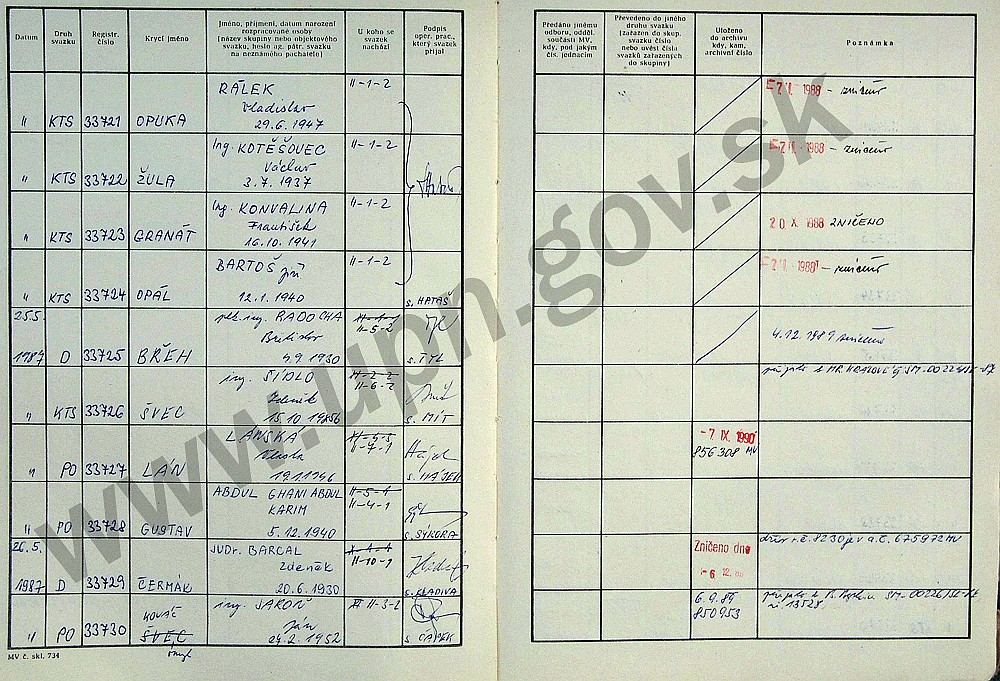 Datum
Druh svazku
Registr. číslo
Krycí jméno
Jméno, příjmení, datum narození
rozpracované osoby
(název skupiny nebo objektového
svazku, heslo ag. pátr. svazku
na neznámého pachatele)
U koho se svazek nachází
Podpis oper. prac., který svazek přijal
Předáno jinému odboru, odděl. součásti MV, kdy, pod jakým čís. jednacím
Převedeno do jiného druhu svazku (zařazen do skup. svazku číslo nebo uvést čísla svazků zařazených do skupiny)
Uloženo do archivu kdy, kam, archivní číslo
Poznámka
RÁLEK II-1-2
Vladislav
" KTS 33721 OPUKA 29.6.1947
1988 - zničen
Ing. KOTĚŠOVEC II-1-2
Václav
" KTS 33722 ŽULA 3.7.1937
1988 - zničen
Ing. KONVALINA II-1-2
František
" KTS 33723 GRANÁT 16.10.1941
20. X. 1988 ZNIČENO
BARTOŠ Jiří II-1-2
" KTS 33724 OPÁL 12.1.1940 s. HATAŠ
1988 - zničen
25.5. plk. ing. RADOCHA II-5-2
Břetislav
1987 D 33725 BŘEH 4.9.1930 s. TYL
4.12.1989 zničen
ing. ŠÍDLO II-6-2
Zdeněk
" KTS 33726 ŠVEC 15.10. s. MÍT
LÁNSKÁ II-7-1
Vlasta
" PO 33727 LÁN 19.1.1946 s. HÁJEK
- 7. IX. 1990
856308 MV
ABDUL GHANI ABDUL II-5-1
KARIM II-4-1
" PO 33728 GUSTAV 5.12.1940 s. SÝKORA
26.5. JUDr. BARCAL II-10-1
Zdeněk
1987 D 33729 ČERMÁK 20.6.1930 s. HLADIVA
Zničeno dne
- 6. 12.
a.č. 675972 MV
KOVÁČ ing. JAKOŇ II-3-2
Ján
" PO 33730 ŠVEC 24.2.1952
omyl
6.9.89
850953
MV č. skl. 734
www.upn.gov.sk